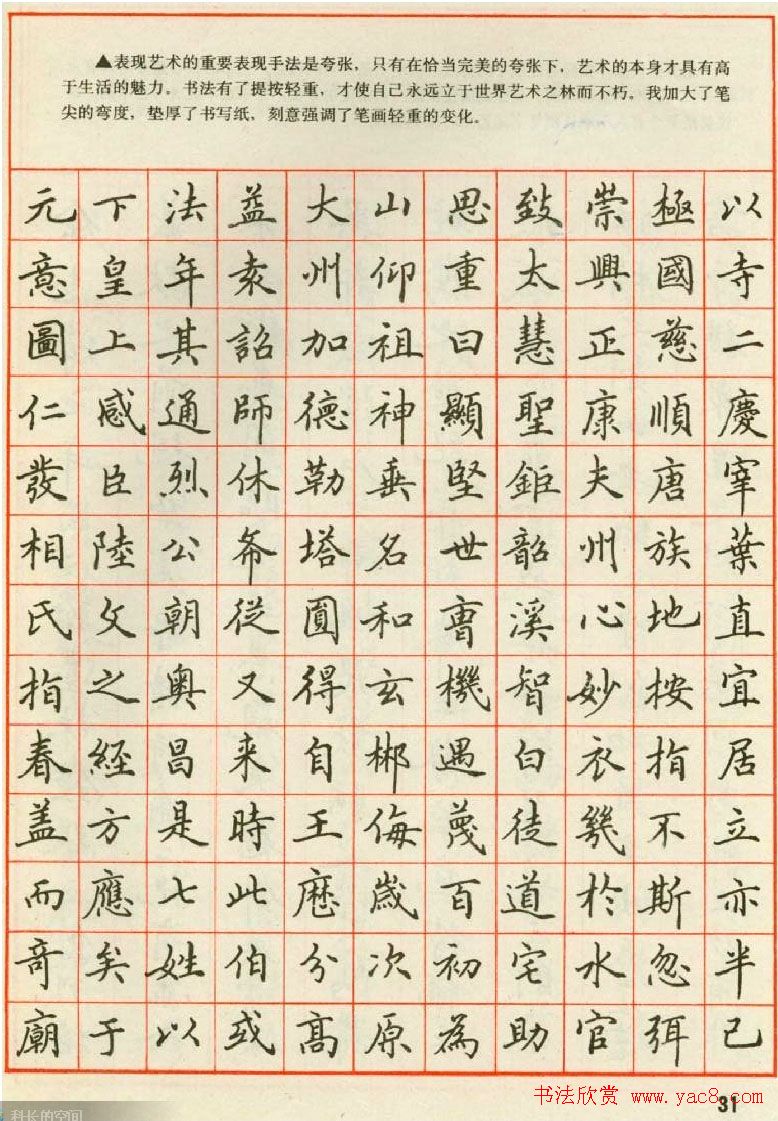 ▲表现艺术的重要表现手法是夸张，只有在恰当完美的夸张下，艺术的本身才具有高
于生活的魅力。书法有了提按轻重，才使自己永远立于世界艺术之林而不朽。我加大了笔
尖的弯度，垫厚了书写纸，刻意强调了笔画轻重的变化。
元下法益大山思致崇極以
意皇年袁州仰重太興國寺
圖上其詔加祖曰慧正慈二
仁感通師德神顯聖康順慶
發臣烈休勒垂堅鉅夫唐宰
相陸公塔名世韶州族葉
氏文朝從圓和曹溪心地直
指之奥又得玄機智妙按宜
春經昌来自郴遇白衣指居
盖方是時王侮蔑徒幾不立
而應七此歷歲百道於斯亦
奇矣姓伯分次初宅水忽半
廟于以或高原為助官弭已
书法欣赏 www.yac8.com
31
科长的空间